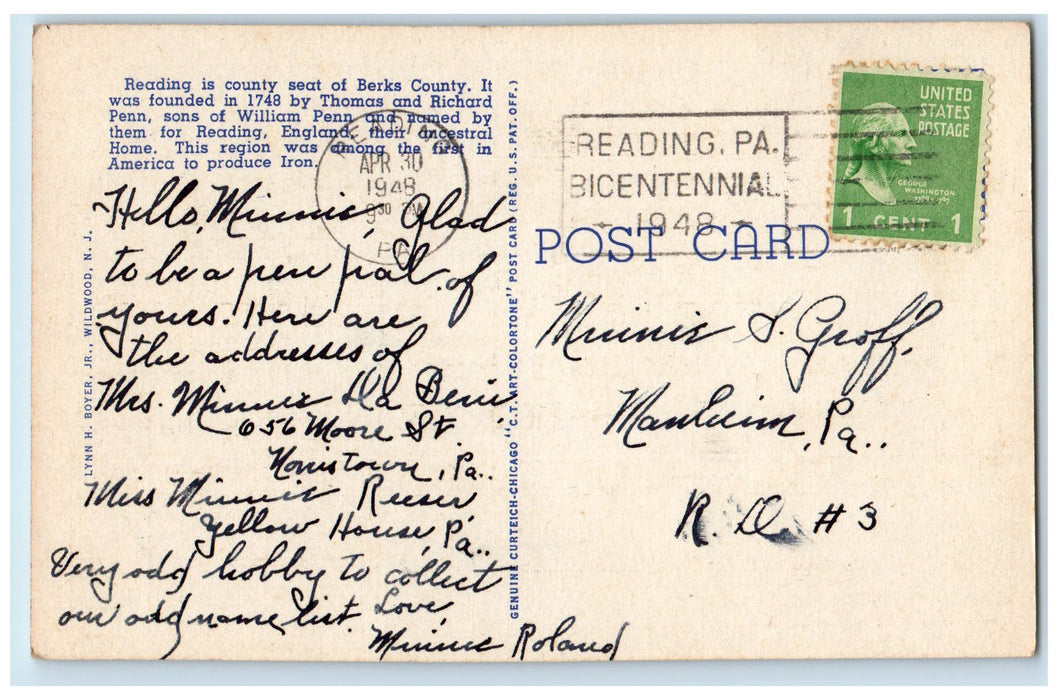 Reading is county seat of Berks County. It
was founded in 1748 by Thomas and Richard
Penn, sons of William Penn and named by
them for Reading, England, their ancestral
Home. This region was among the first in
America to produce Iron.
READING
APR 30
1948
9 30 PM
PA
READING, PA.
BICENTENNIAL
1948
UNITED
STATES
POSTAGE
GEORGE
WASHINGTON
1 CENT 1
POST CARD
Hello, Minnie, Glad
to be a pen pal of
yours. Here are
the addresses of
Mrs. Minnie Da Beni
656 Moore St
Norristown, Pa..
Miss Minnie Reeser,
Yellow House, Pa..
Very odd hobby to collect
our odd name list. Love,
Minnie Roland
Minnie S. Groff,
Manheim, Pa..
R. D. #3
LYNN H. BOYER, JR., WILDWOOD, N. J.
GENUINE CURTEICH-CHICAGO "C.T. ART-COLORTONE" POST CARD (REG. U.S. PAT. OFF.)